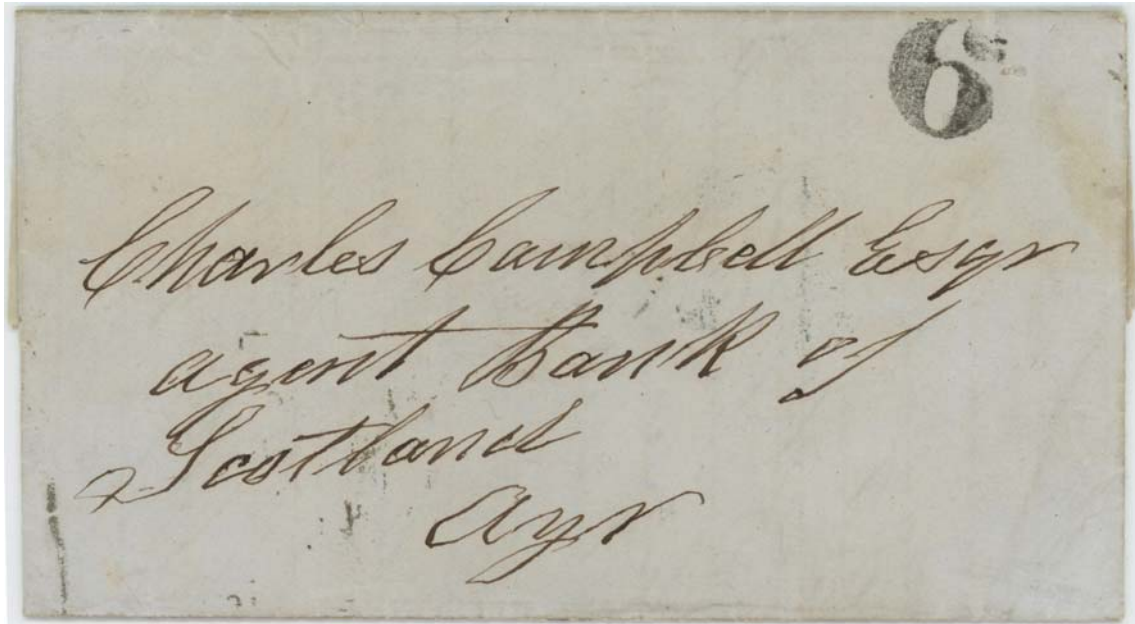 6
Charles Campbell Esqr
agent Bank of
Scotland
Ayr